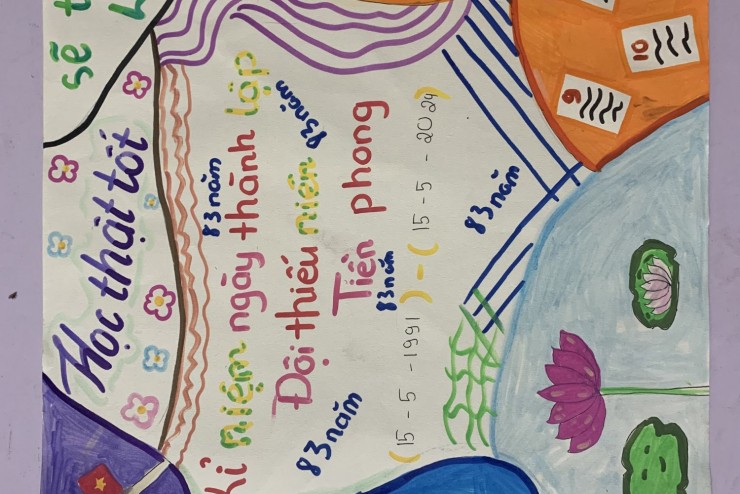 sẽ
Học thật tốt
kỉ niệm ngày thành lập
83 năm
83 năm
Đội thiếu niên
Tiền phong
83 năm
83 năm
(15 - 5 - 1991) - (15 - 5 - 2024)
83 năm
9
10